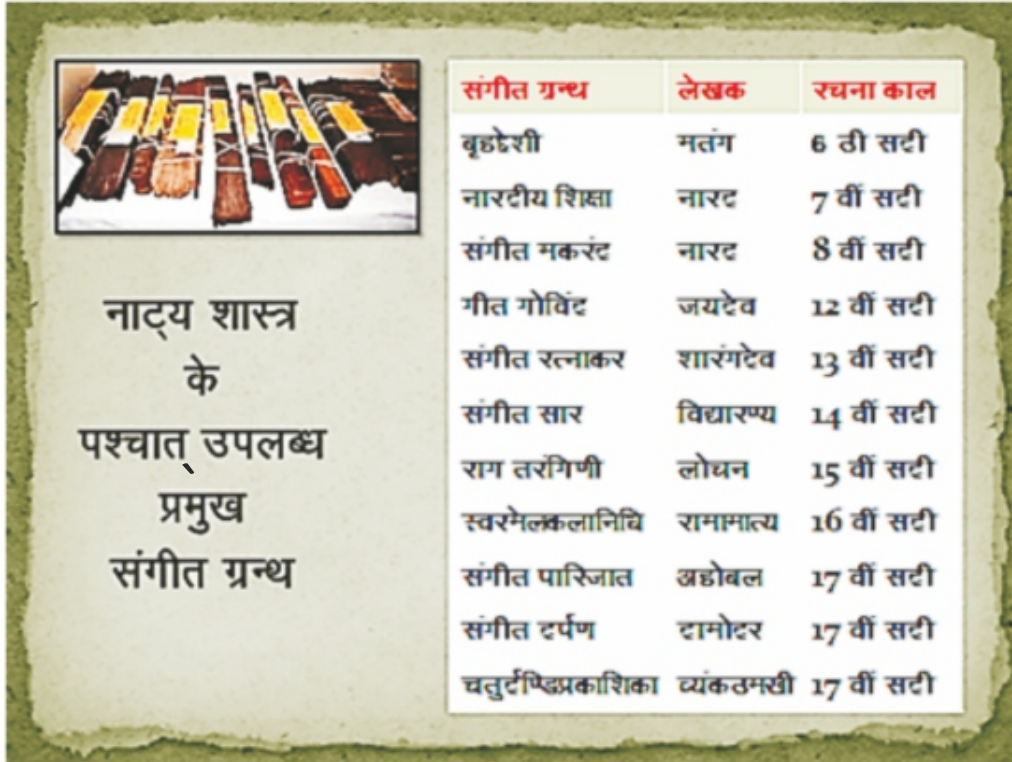 नाट्य शास्त्र
के
पश्चात् उपलब्ध
प्रमुख
संगीत ग्रन्थ
संगीत ग्रन्थ लेखक रचना काल
बृहद्देशी मतंग 6 ठी सदी
नारदीय शिक्षा नारद 7 वीं सदी
संगीत मकरंद नारद 8 वीं सदी
गीत गोविंद जयदेव 12 वीं सदी
संगीत रत्नाकर शारंगदेव 13 वीं सदी
संगीत सार विद्यारण्य 14 वीं सदी
राग तरंगिणी लोचन 15 वीं सदी
स्वरमेलकलानिधि रामामात्य 16 वीं सदी
संगीत पारिजात अहोबल 17 वीं सदी
संगीत दर्पण दामोदर 17 वीं सदी
चतुर्दण्डिप्रकाशिका व्यंकठमखी 17 वीं सदी